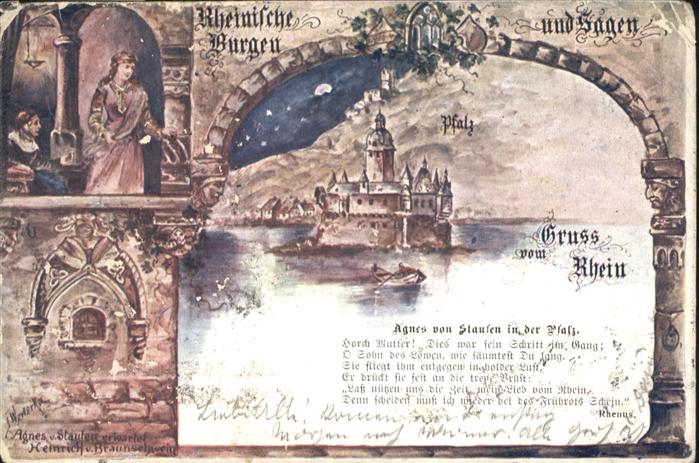 Rheinische
Burgen
und Sagen
Pfalz
Gruss
vom
Rhein
Agnes von Staufen in der Pfalz.
Horch Mutter! Dies war sein Schritt im Gang;
O Sohn des Löwen, wie säumtest Du lang.
Sie fliegt ihm entgegen in holder Lust,
Er drückt sie fest an die treue Brust:
„Laß nützen uns die Zeit, mein Lieb vom Rhein,
Denn scheiden muß ich wieder bei des Frührots Schein.“
Rhenus.
kommen
Morgen nach
Agnes v. Staufen erwartet
Heinrich v. Braunschweig